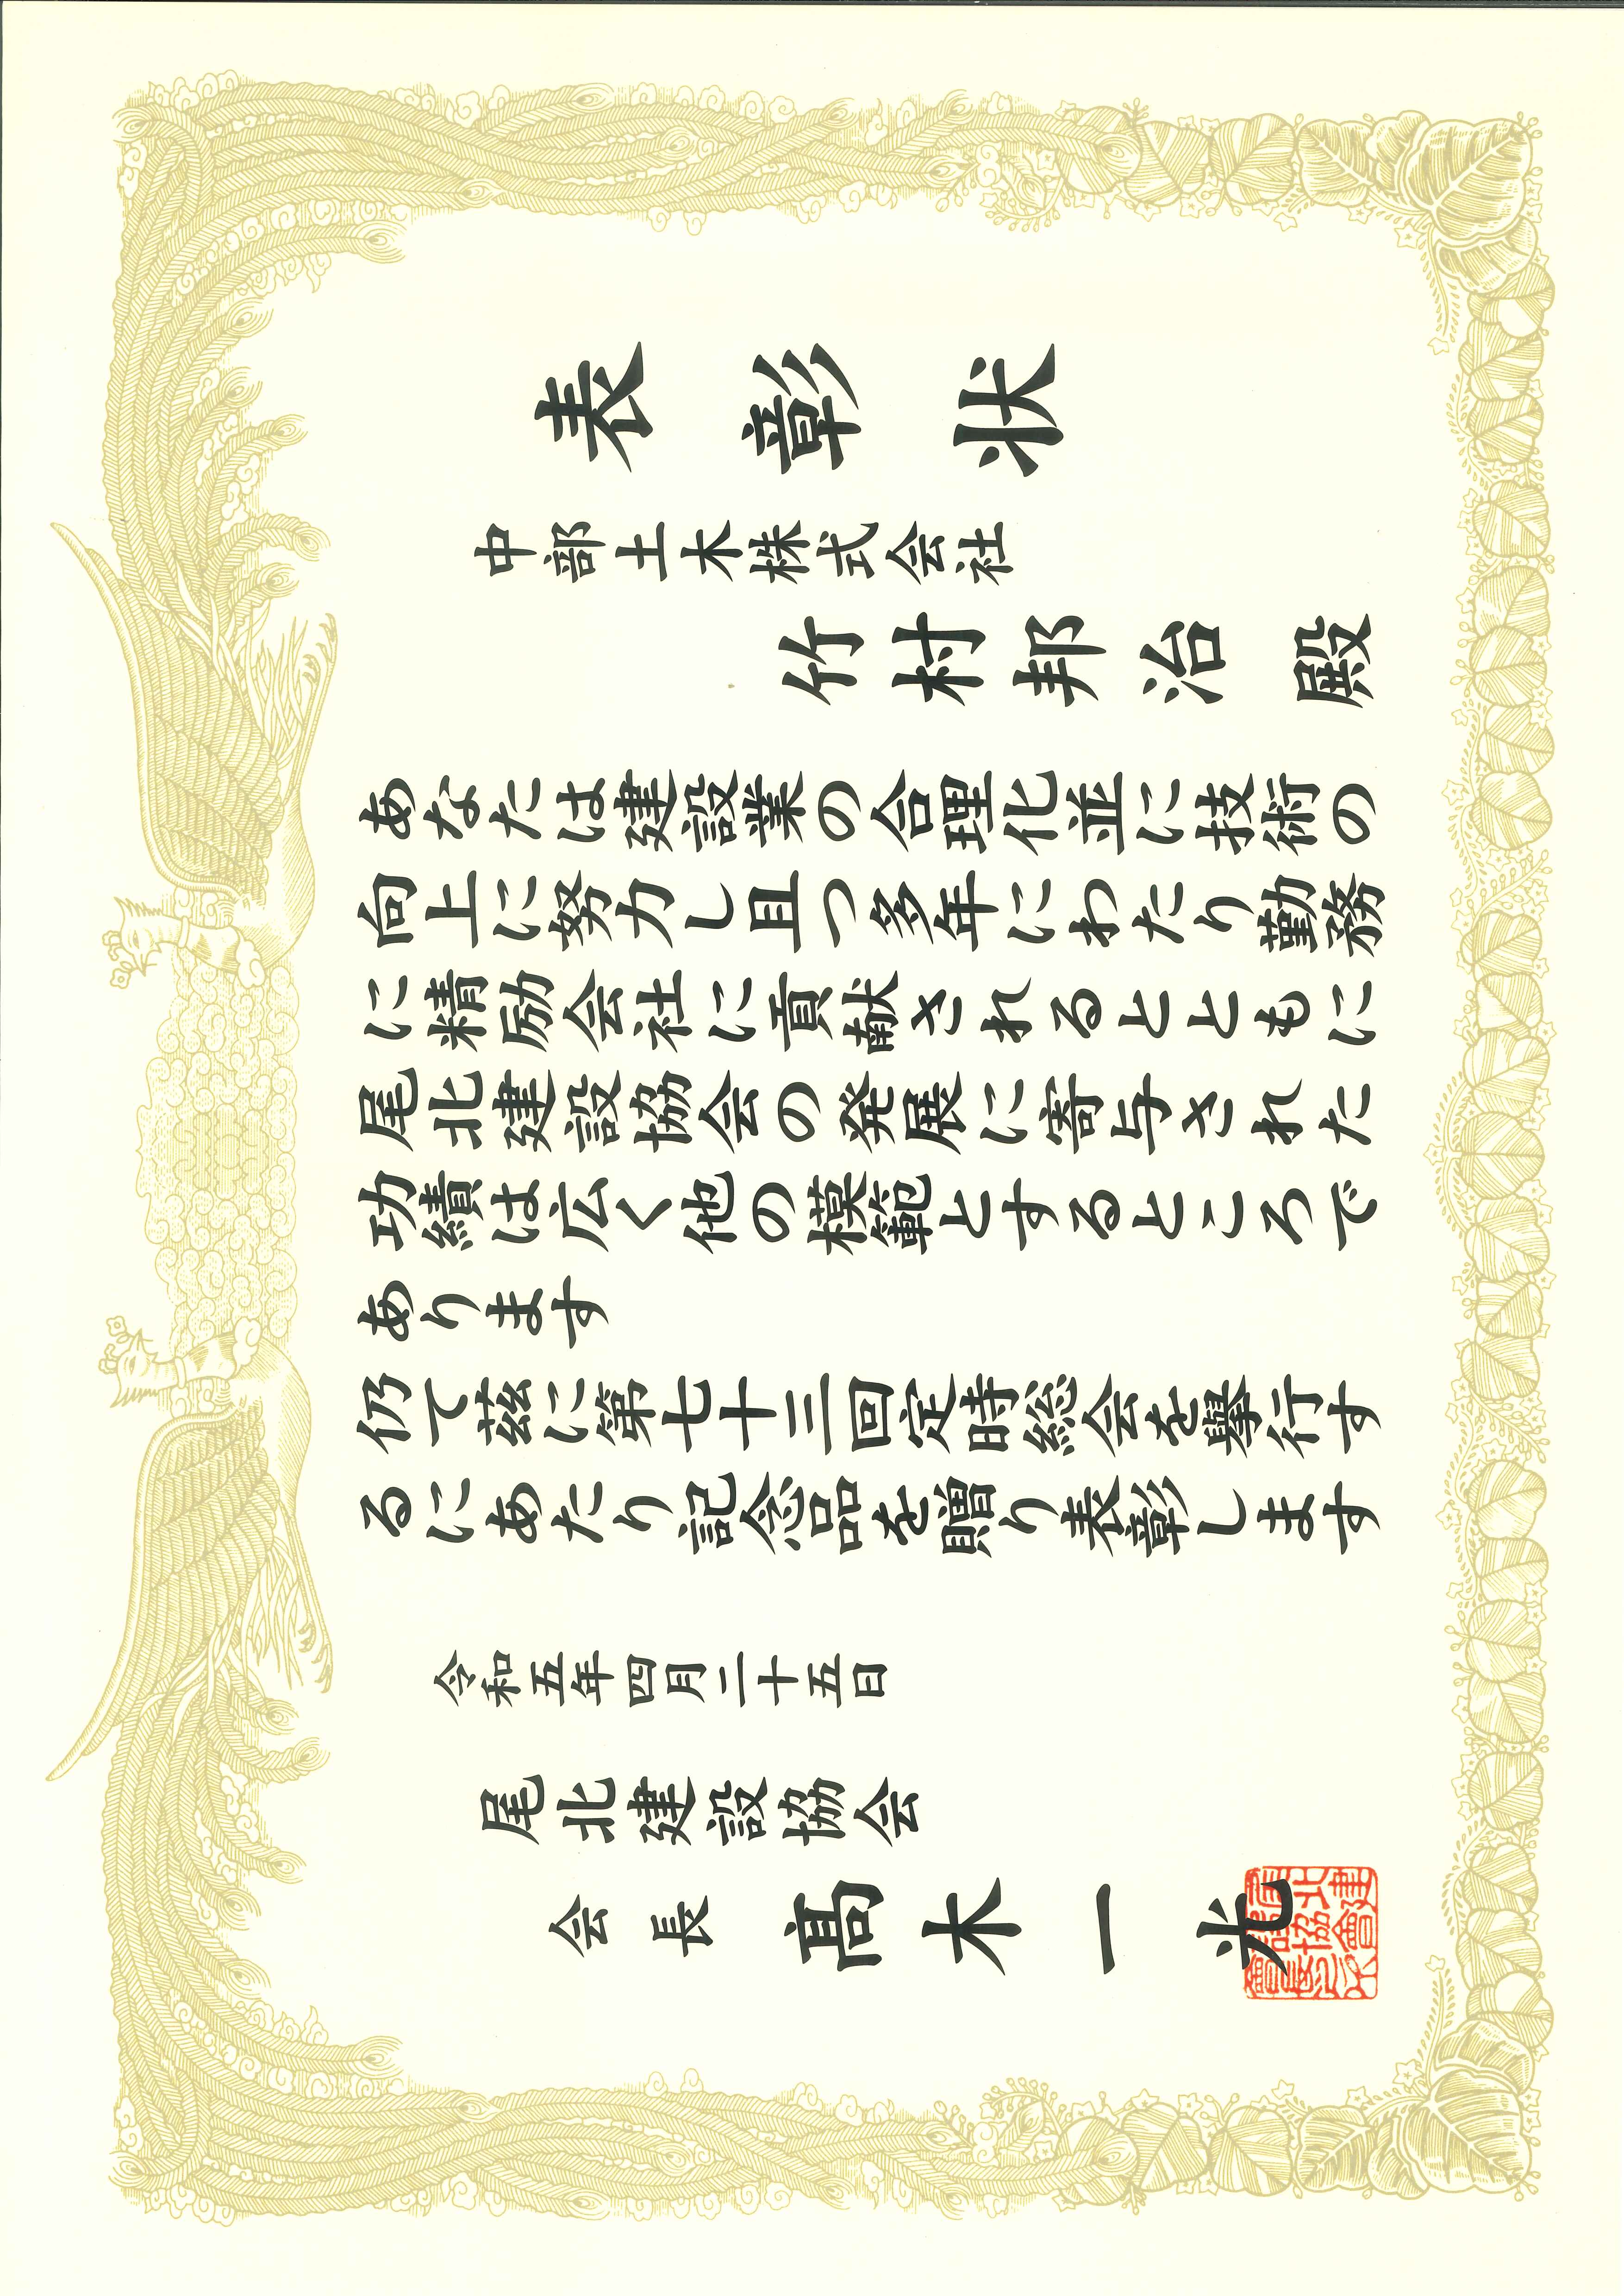 表彰状
中部土木株式会社
竹村邦治 殿
あなたは建設業の合理化並に技術の
向上に努力し且つ多年にわたり勤務
に精励会社に貢献されるとともに
尾北建設協会の発展に寄与された
功績は広く他の模範とするところで
あります
仍て茲に第七十三回定時総会を擧行す
るにあたり記念品を贈り表彰します
令和五年四月二十五日
尾北建設協会
会長 髙木一光